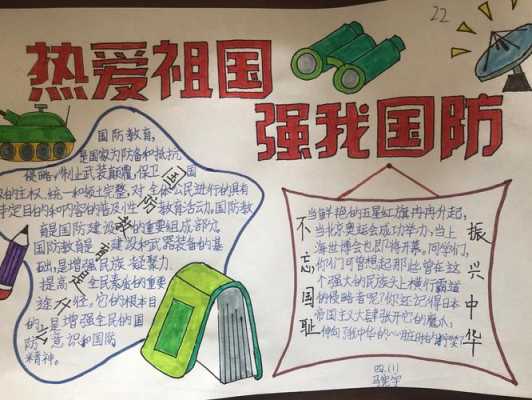 22
热爱祖国
强我国防
国防教育,
是国家为防备和抵抗
侵略,制止武装颠覆,保卫国
的主权、统一和领土完整,对全体公民进行的具有
特定目的和内容的普及性教育活动。国防教
育是国防建设的重要组成部分,
国防教育是建设和武器装备的基
础,是增强民族凝聚力、
提高全民素养的重要
途径。它的根本目
的是增强全民的国
防意识和国防
精神。
国防教育
不忘国耻
当鲜艳的五星红旗冉冉升起,
当北京奥运会成功举办,当上
海世博会也即将开幕,同学们,
你们可曾想起那些曾在这
个强大的民族头上横行霸道
的侵略者呢?你还记得日本
帝国主义大肆张开它的魔爪,
伸向我中华的心脏时的
振兴中华
四.(1)